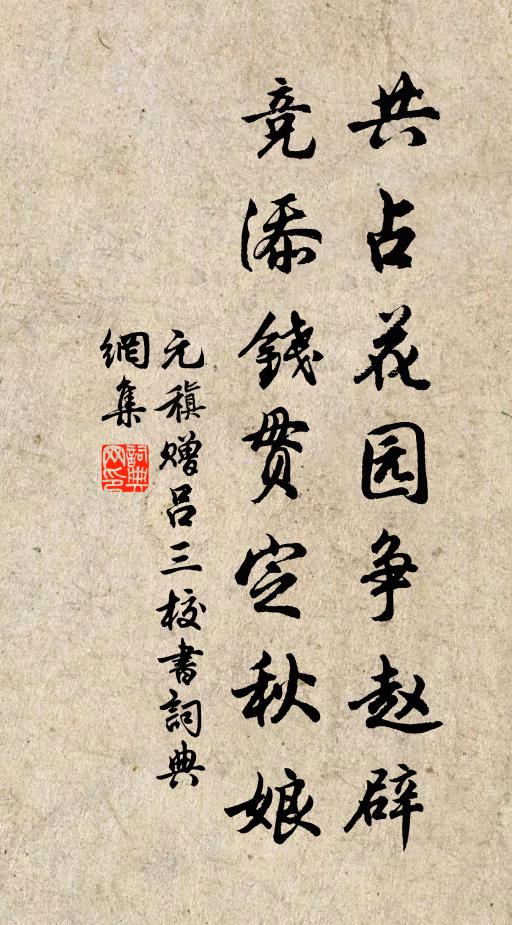 共占花园争赵辟
竞添錢贯定秋娘
元稹赠吕三校書詞典
網集
詞典网印